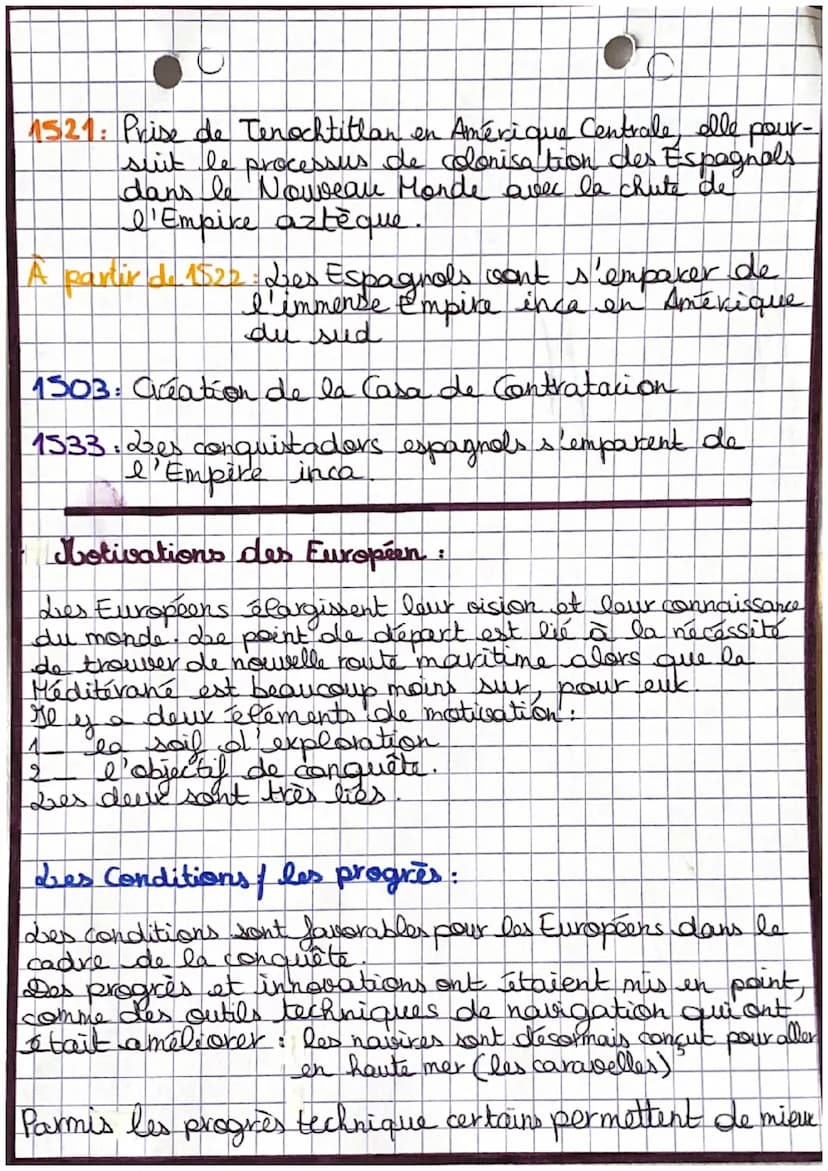 1521: Prise de Tenochtitlan en Amérique Centrale, elle pour-
suit le processus de colonisation des Espagnols
dans le Nouveau Monde avec la chute de
l'Empire aztèque.
À partir de 1522: Les Espagnols vont s'emparer de
l'immense Empire inca en Amérique
du sud
1503: Création de la Casa de Contratacion
1533: Les conquistadors espagnols s'emparent de
l'Empire inca.
Motivations des Européen :
Les Européens élargissent leur vision et leur connaissance
du monde. Le point de départ est lié à la nécéssité
de trouver de nouvelle route maritime alors que la
Méditéranné est beaucoup moins sur, pour eux.
Il y a deux éléments de motivation :
1_ la soif d'exploration
2_ l'objectif de conquête.
Les deux sont très liés.
Les Conditions / les progrès :
Les conditions sont favorables pour les Européens dans le
cadre de la conquête.
Des progrès et innovations ont étaient mis en point,
comme des outils techniques de navigation qui ont
était améliorer : les navires sont désormais conçut pour aller
en haute mer (les caravelles)
Parmis les progrès technique certains permettent de mieux